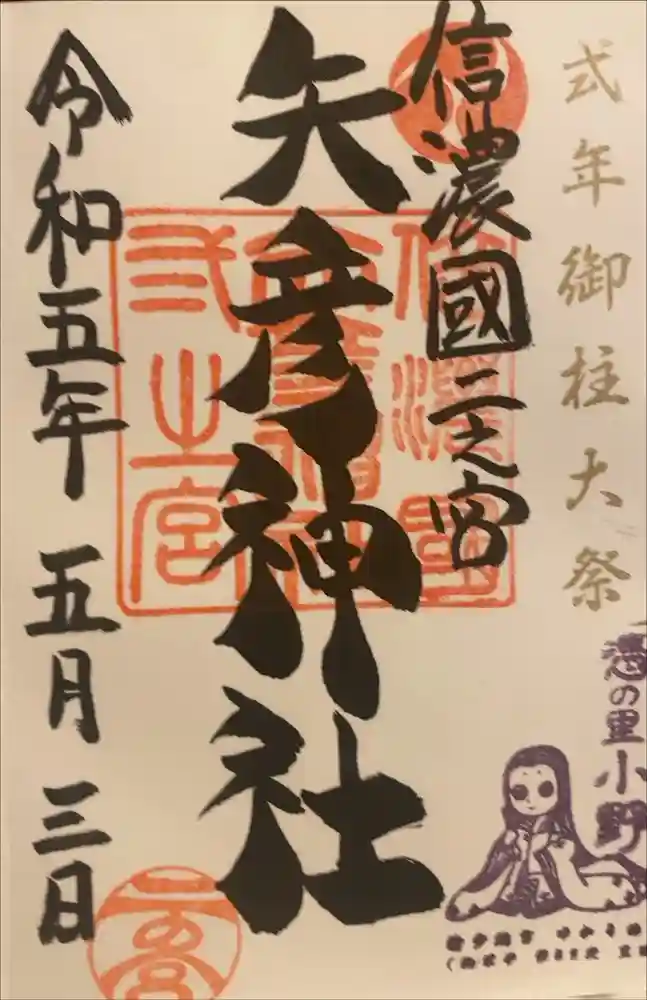 式年御柱大祭
信濃國二之宮
矢彦神社
令和五年 五月 三日
信濃國
弐之宮
憑の里
小野